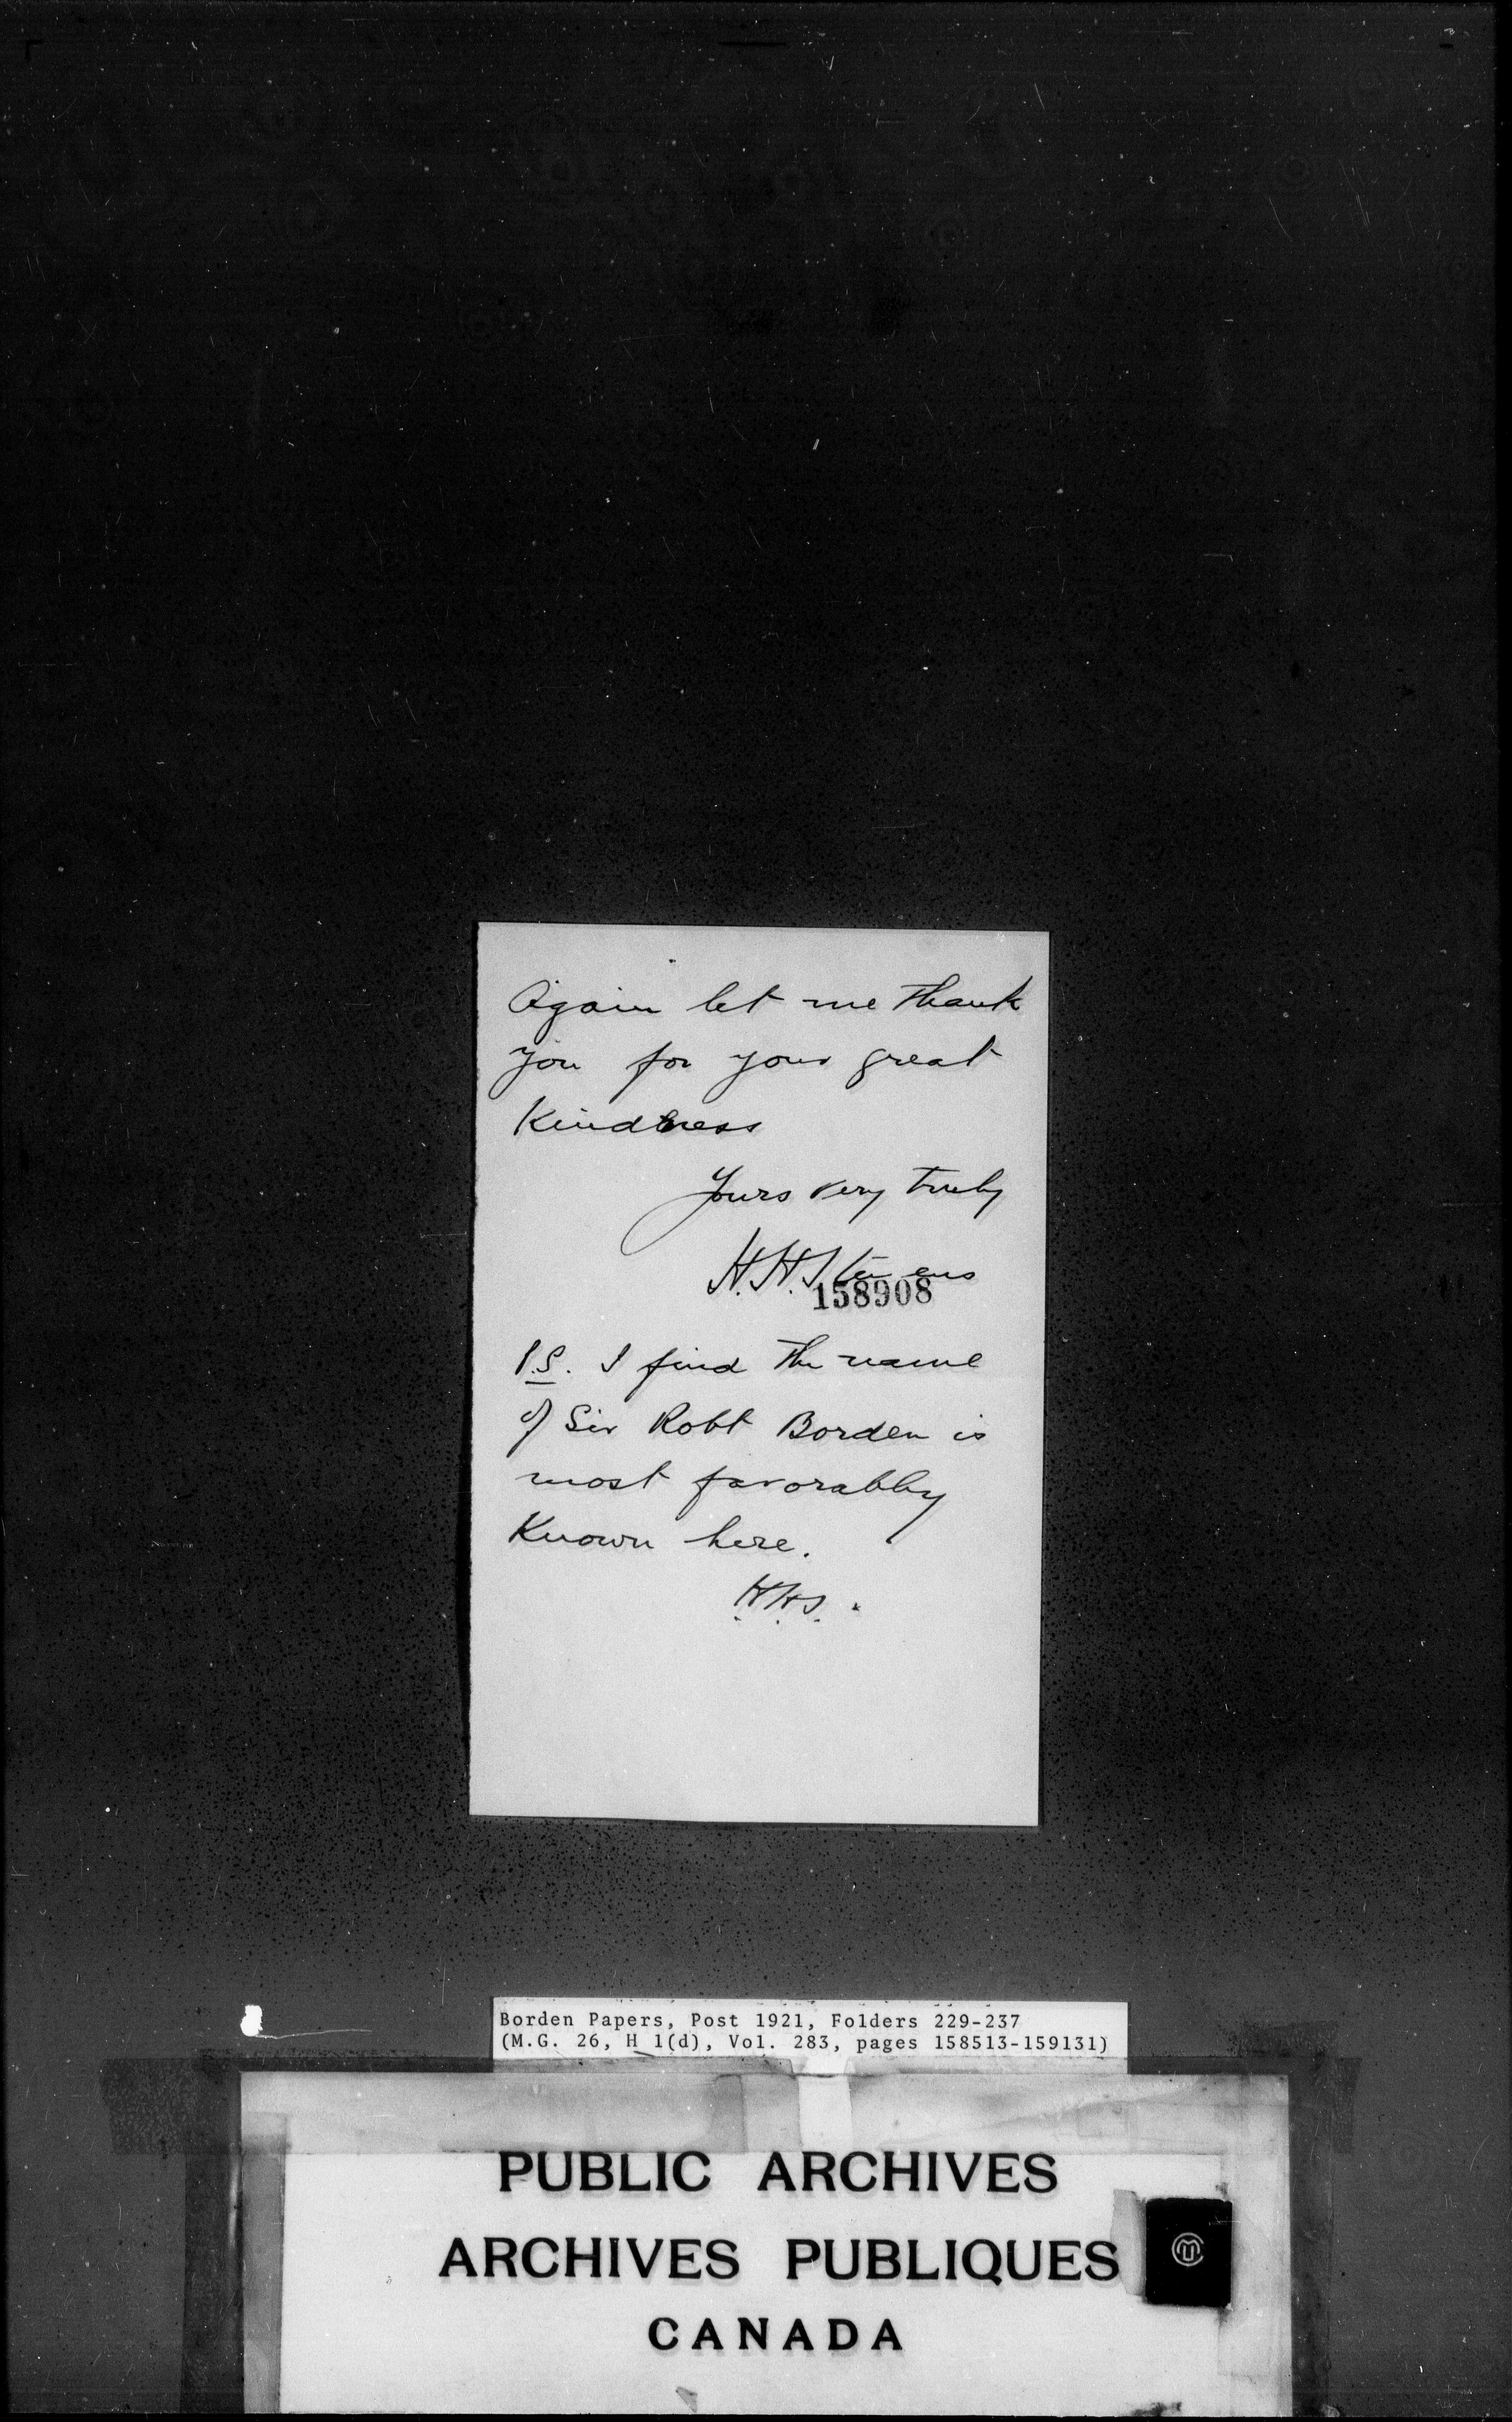 Again let me thank
you for your great
Kindness
Yours very truly
H.H. Stevens
158908
P.S. I find the name
of Sir Robt Borden is
most favorably
Known here.
H.H.S.
Borden Papers, Post 1921, Folders 229-237
(M.G. 26, H 1(d), Vol. 283, pages 158513-159131)
PUBLIC ARCHIVES
ARCHIVES PUBLIQUES
CANADA